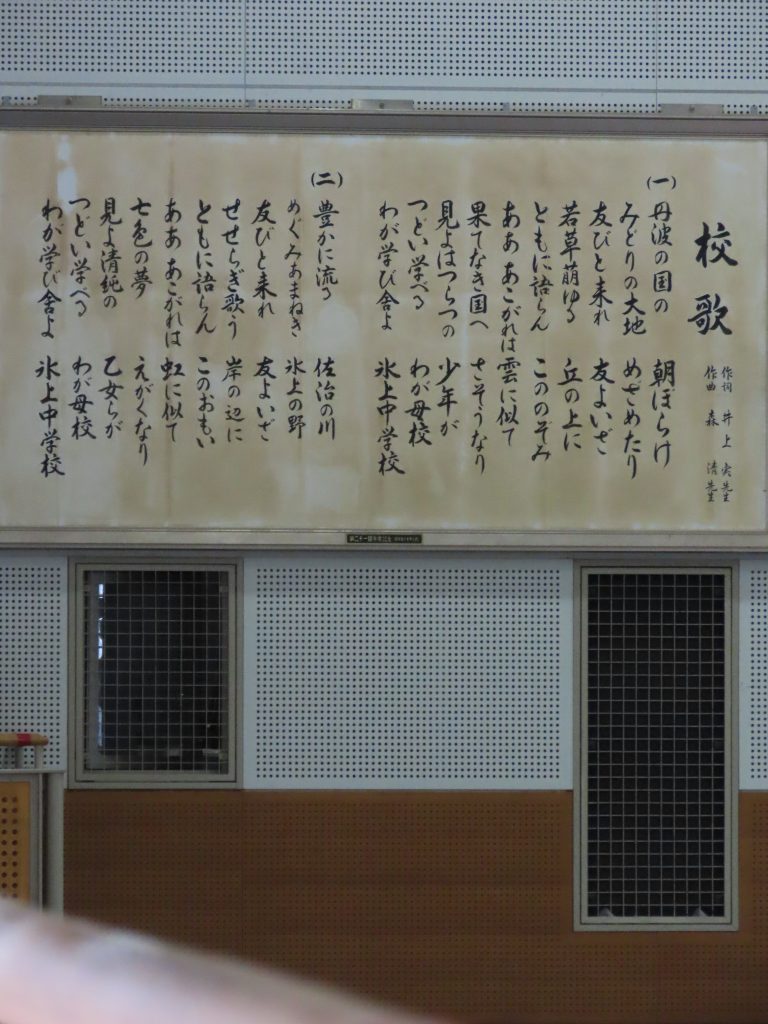 校歌
作詞 井上 実先生
作曲 森 清先生
(一) 丹波の国の 朝ぼらけ
みどりの大地 めざめたり
友びと来れ 友よいざ
若草萠ゆる 丘の上に
ともに語らん こののぞみ
ああ あこがれは 雲に似て
果てなき国へ さそうなり
見よはつらつの 少年が
つどい学べる わが母校
わが学び舎よ 氷上中学校
(二) 豊かに流る 佐治の川
めぐみあまねき 氷上の野
友びと来れ 友よいざ
せせらぎ歌う 岸の辺に
ともに語らん このおもい
ああ あこがれは 虹に似て
七色の夢 えがくなり
見よ清純の 乙女らが
つどい学べる わが母校
わが学び舎よ 氷上中学校